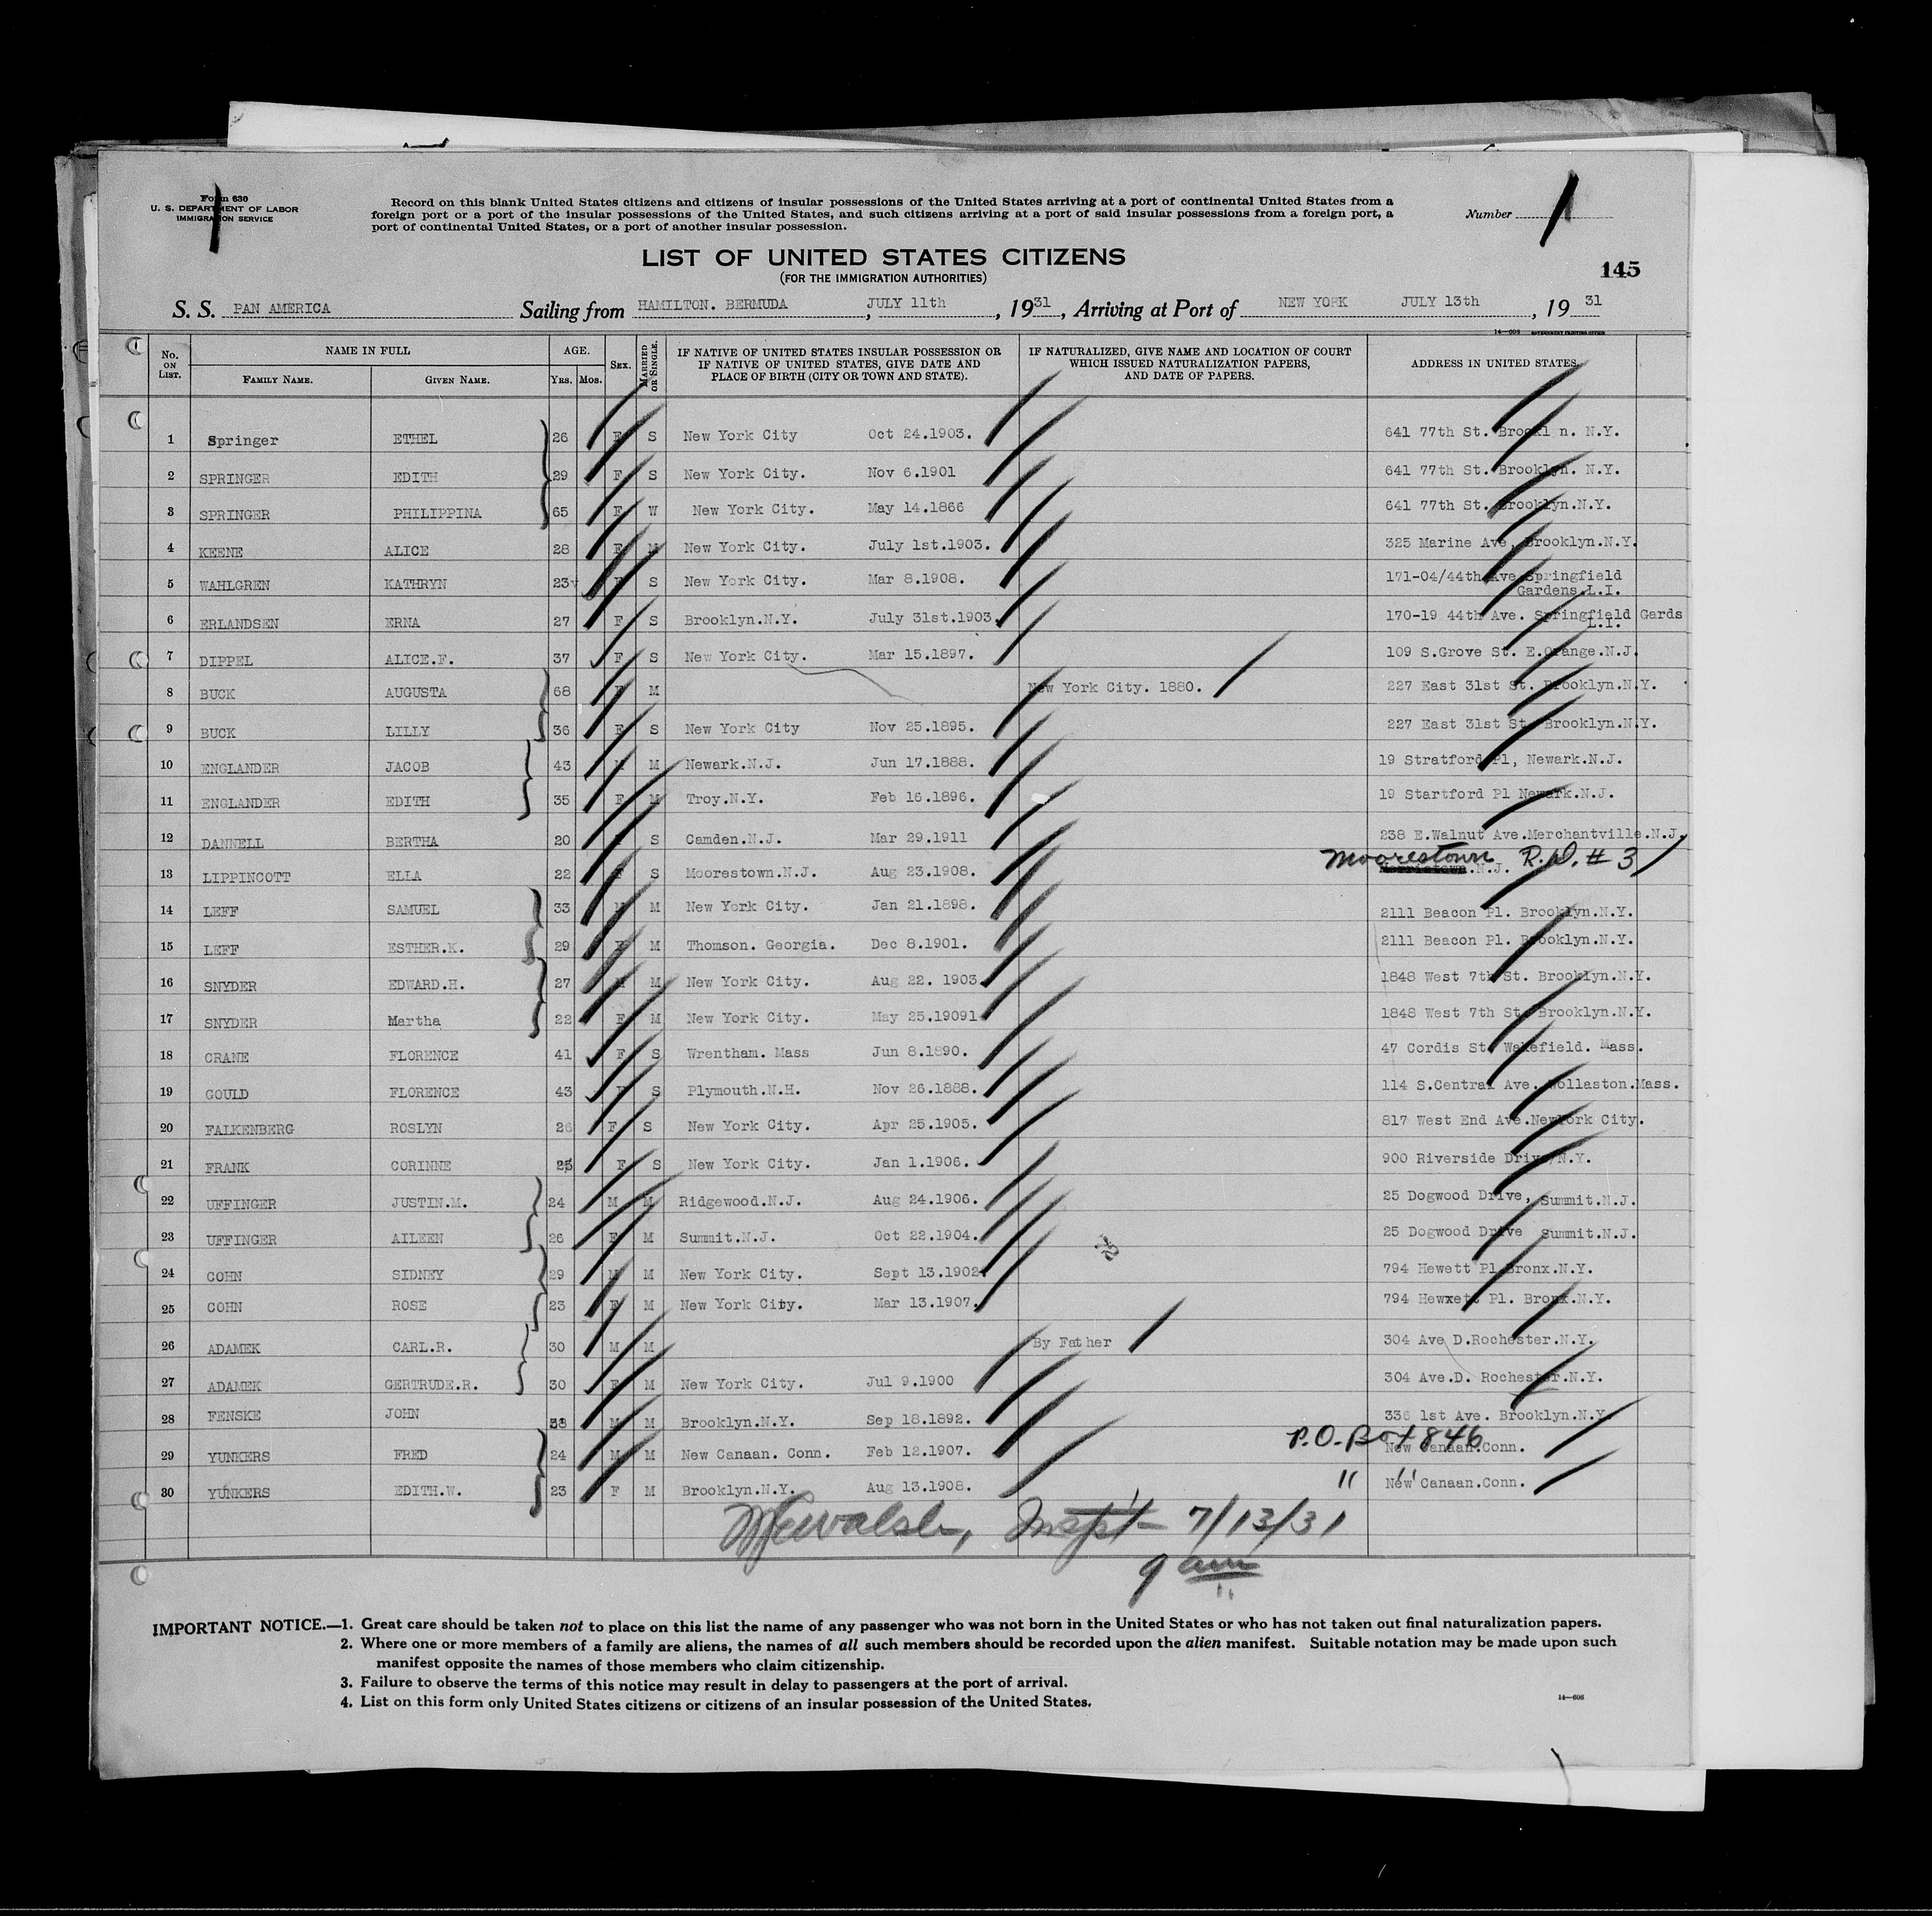 Form 630
U. S. DEPARTMENT OF LABOR
IMMIGRATION SERVICE
Record on this blank United States citizens and citizens of insular possessions of the United States arriving at a port of continental United States from a
foreign port or a port of the insular possessions of the United States, and such citizens arriving at a port of said insular possessions from a foreign port, a
port of continental United States, or a port of another insular possession.
Number 1
LIST OF UNITED STATES CITIZENS
(FOR THE IMMIGRATION AUTHORITIES)
145
S. S. PAN AMERICA Sailing from HAMILTON. BERMUDA, JULY 11th, 1931, Arriving at Port of NEW YORK JULY 13th, 1931
14—606 GOVERNMENT PRINTING OFFICE
No. ON LIST. NAME IN FULL FAMILY NAME. GIVEN NAME. AGE. YRS. MOS. SEX. MARRIED OR SINGLE. IF NATIVE OF UNITED STATES INSULAR POSSESSION OR IF NATIVE OF UNITED STATES, GIVE DATE AND PLACE OF BIRTH (CITY OR TOWN AND STATE). IF NATURALIZED, GIVE NAME AND LOCATION OF COURT WHICH ISSUED NATURALIZATION PAPERS, AND DATE OF PAPERS. ADDRESS IN UNITED STATES.
1 Springer ETHEL 26 F S New York City Oct 24.1903. 641 77th St. Brookl n. N.Y.
2 SPRINGER EDITH 29 F S New York City. Nov 6.1901 641 77th St. Brooklyn. N.Y.
3 SPRINGER PHILIPPINA 65 F W New York City. May 14.1866 641 77th St. Brooklyn.N.Y.
4 KEENE ALICE 28 F M New York City. July 1st.1903. 325 Marine Ave, Brooklyn.N.Y.
5 WAHLGREN KATHRYN 23 F S New York City. Mar 8.1908. 171-04/44th Ave Springfield
Gardens.L.I.
6 ERLANDSEN ERNA 27 F S Brooklyn.N.Y. July 31st.1903. 170-19 44th Ave. Springfield Gards
L.I.
7 DIPPEL ALICE.F. 37 F S New York City. Mar 15.1897. 109 S.Grove St. E.Orange.N.J.
8 BUCK AUGUSTA 68 F M New York City. 1880. 227 East 31st St. Brooklyn.N.Y.
9 BUCK LILLY 36 F S New York City Nov 25.1895. 227 East 31st St. Brooklyn.N.Y.
10 ENGLANDER JACOB 43 M M Newark.N.J. Jun 17.1888. 19 Stratford Pl, Newark.N.J.
11 ENGLANDER EDITH 35 F M Troy.N.Y. Feb 16.1896. 19 Startford Pl Newark.N.J.
12 DANNELL BERTHA 20 F S Camden.N.J. Mar 29.1911 238 E.Walnut Ave.Merchantville.N.J.
Moorestown R.D. # 3
13 LIPPINCOTT ELLA 22 F S Moorestown.N.J. Aug 23.1908. .N.J.
14 LEFF SAMUEL 33 M M New York City. Jan 21.1898. 2111 Beacon Pl. Brooklyn.N.Y.
15 LEFF ESTHER.K. 29 F M Thomson. Georgia. Dec 8.1901. 2111 Beacon Pl. Brooklyn.N.Y.
16 SNYDER EDWARD.H. 27 M M New York City. Aug 22. 1903 1848 West 7th St. Brooklyn.N.Y.
17 SNYDER Martha 22 F M New York City. May 25.19091 1848 West 7th St. Brooklyn.N.Y.
18 CRANE FLORENCE 41 F S Wrentham. Mass Jun 8.1890. 47 Cordis St. Wakefield. Mass.
19 GOULD FLORENCE 43 F S Plymouth.N.H. Nov 26.1888. 114 S.Central Ave. Wollaston.Mass.
20 FALKENBERG ROSLYN 26 F S New York City. Apr 25.1905. 817 West End Ave.New York City.
21 FRANK CORINNE 25 F S New York City. Jan 1.1906. 900 Riverside Drive N.Y.
22 UFFINGER JUSTIN.M. 24 M M Ridgewood.N.J. Aug 24.1906. 25 Dogwood Drive, Summit.N.J.
23 UFFINGER AILEEN 26 F M Summit.N.J. Oct 22.1904. 25 Dogwood Drive Summit.N.J.
24 COHN SIDNEY 29 M M New York City. Sept 13.1902. 794 Hewett Pl Bronx.N.Y.
25 COHN ROSE 23 F M New York City. Mar 13.1907. 794 Hewxett Pl. Bronx.N.Y.
26 ADAMEK CARL.R. 30 M M By Father 304 Ave D.Rochester.N.Y.
27 ADAMEK GERTRUDE.R. 30 F M New York City. Jul 9.1900 304 Ave.D. Rochester.N.Y.
28 FENSKE JOHN 38 M M Brooklyn.N.Y. Sep 18.1892. 336 1st Ave. Brooklyn.N.Y.
P.O. Box 846
29 YUNKERS FRED 24 M M New Canaan. Conn. Feb 12.1907. New Canaan.Conn.
30 YUNKERS EDITH.W. 23 F M Brooklyn.N.Y. Aug 13.1908. " " New Canaan.Conn.
Insp't 7/13/31
9 am
IMPORTANT NOTICE.—1. Great care should be taken not to place on this list the name of any passenger who was not born in the United States or who has not taken out final naturalization papers.
2. Where one or more members of a family are aliens, the names of all such members should be recorded upon the alien manifest. Suitable notation may be made upon such
manifest opposite the names of those members who claim citizenship.
3. Failure to observe the terms of this notice may result in delay to passengers at the port of arrival.
4. List on this form only United States citizens or citizens of an insular possession of the United States.
14—606